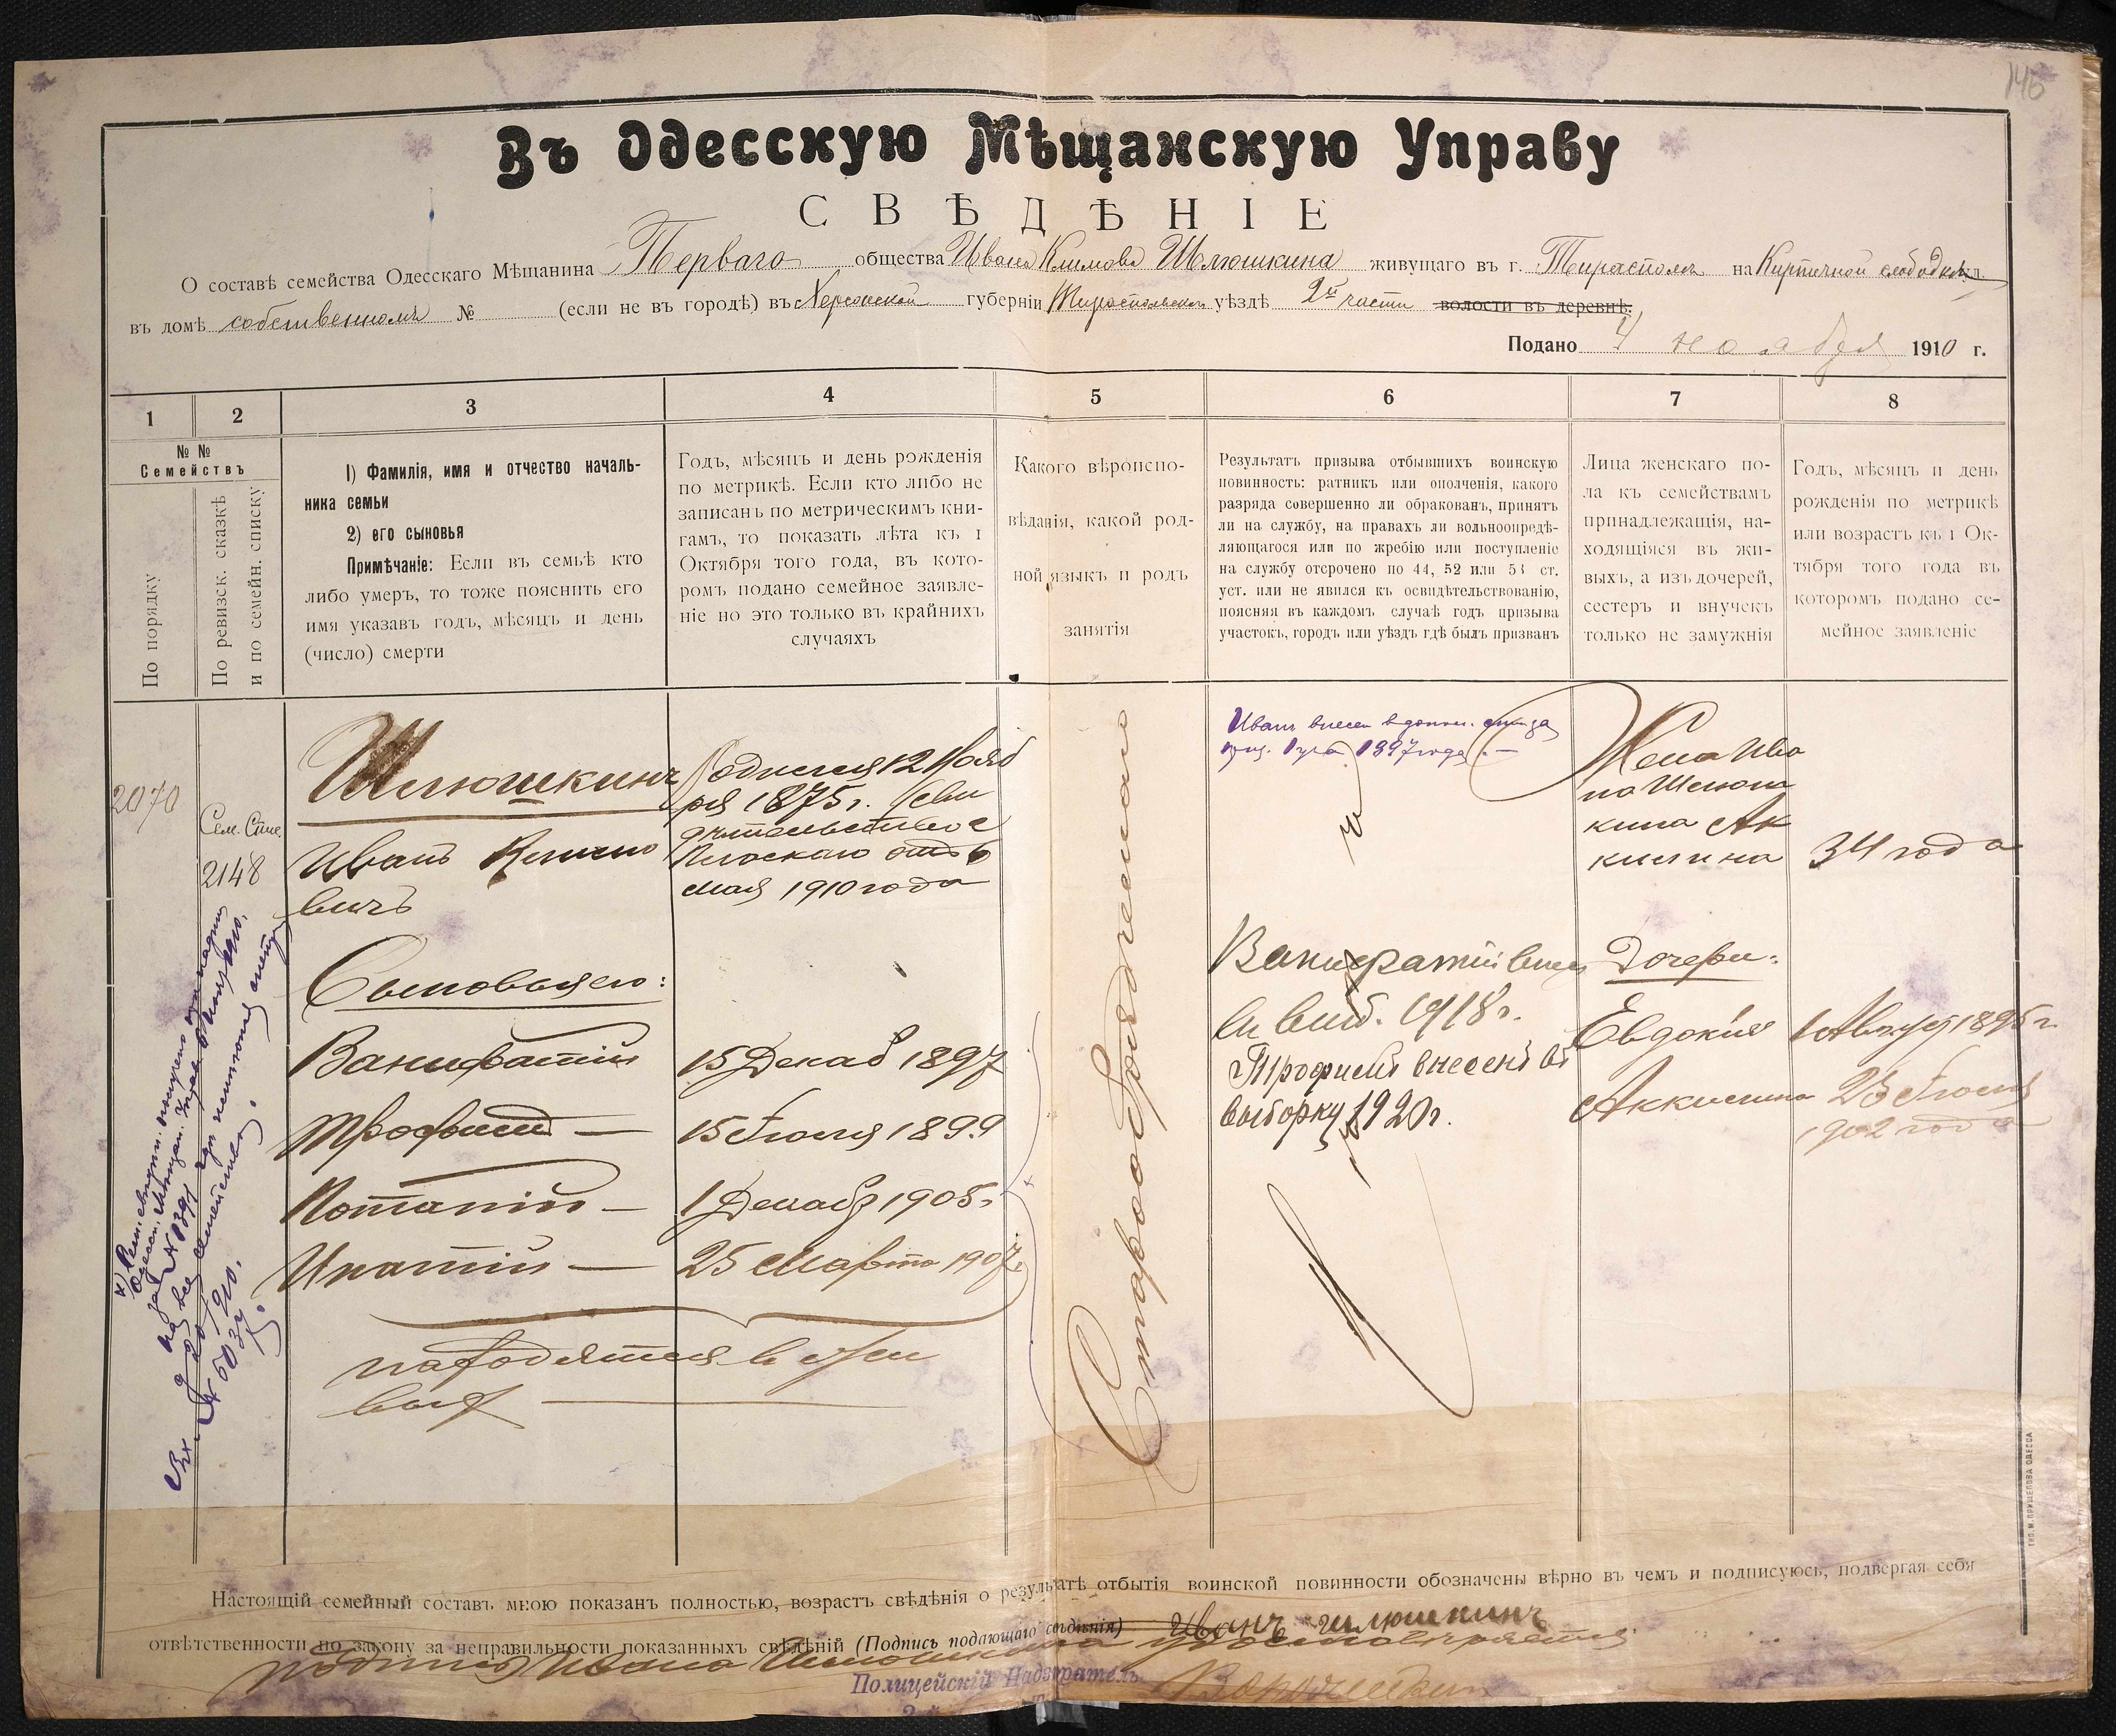 146
Въ Одесскую Мѣщанскую Управу
СВѢДѢНІЕ
О составѣ семейства Одесскаго Мѣщанина Перваго общества Ивана Климова Шелюшкина живущаго въ г. Тирасполѣ на Кирпичной слободкѣ ул.
въ домѣ собственномъ № (если не въ городѣ) въ Херсонской губерніи Тираспольскомъ уѣздѣ 2й части волости въ деревнѣ.
Подано 4 ноября 1910 г.
1 2 3 4 5 6 7 8
№ №
Семействъ
По порядку
По ревизск. сказкѣ
и по семейн. списку
1) Фамилія, имя и отчество началь-
ника семьи
2) его сыновья
Примѣчаніе: Если въ семьѣ кто
либо умеръ, то тоже пояснить его
имя указавъ годъ, мѣсяцъ и день
(число) смерти
Годъ, мѣсяцъ и день рожденія
по метрикѣ. Если кто либо не
записанъ по метрическимъ кни-
гамъ, то показать лѣта къ 1
Октября того года, въ кото-
ромъ подано семейное заявле-
ніе но это только въ крайнихъ
случаяхъ
Какого вѣроиспо-
вѣданія, какой род-
ной языкъ и родъ
занятія
Результатъ призыва отбывшихъ воинскую
повинность: ратникъ или ополченія, какого
разряда совершенно ли обракованъ, принятъ
ли на службу, на правахъ ли вольноопредѣ-
ляющагося или по жребію или поступленіе
на службу отсрочено по 44, 52 или 53 ст.
уст. или не явился къ освидѣтельствованію,
поясняя въ каждомъ случаѣ годъ призыва
участокъ, городъ или уѣздъ гдѣ былъ призванъ
Лица женскаго по-
ла къ семействамъ
принадлежащія, на-
ходящіяся въ жи-
выхъ, а изъ дочерей,
сестеръ и внучекъ
только не замужнія
Годъ, мѣсяцъ и день
рожденія по метрикѣ
или возрастъ къ 1 Ок-
тября того года въ
которомъ подано се-
мейное заявленіе
2070
Сем. Спис.
2148
Шелюшкинъ
Иванъ Климо
вичъ
Сыновья его:
Ванифатій
Трофимъ —
Потапій —
Ипатій —
находятся в жи
вых —
Родился 12 Нояб
ря 1875 г. Сви
дѣтельство с
Плоскаго отъ 6
мая 1910 года
15 Декаб 1897
15 Іюля 1899
1 Декабр 1905 г.
25 Марта 1907
Старообрядческаго
Иванъ внесен в допол.
1897 года. —
Ванифатій внес
в выб. 1918 г.
Трофимъ внесенъ въ
выборку 1920 г.
Жена Ива
на Шелюш
кина Ак
килина
34 года
Дочери:
Евдокія
1 Августа 1895 г.
Аккилина
25 Іюня
1902 года
на все семейство.
Вх. № 5032
Настоящій семейный составъ мною показанъ полностью, возрастъ свѣдѣнія о результатѣ отбытія воинской повинности обозначены вѣрно въ чемъ и подписуюсь, подвергая себя
отвѣтственности по закону за неправильности показанныхъ свѣдѣній (Подпись подающаго свѣдѣнія) Иванъ Шелюшкинъ
подпись Ивана Шелюшкина удостовѣряется
Полицейскій Надзиратель
ТИП. М. ПРИЩЕПОВА ОДЕССА